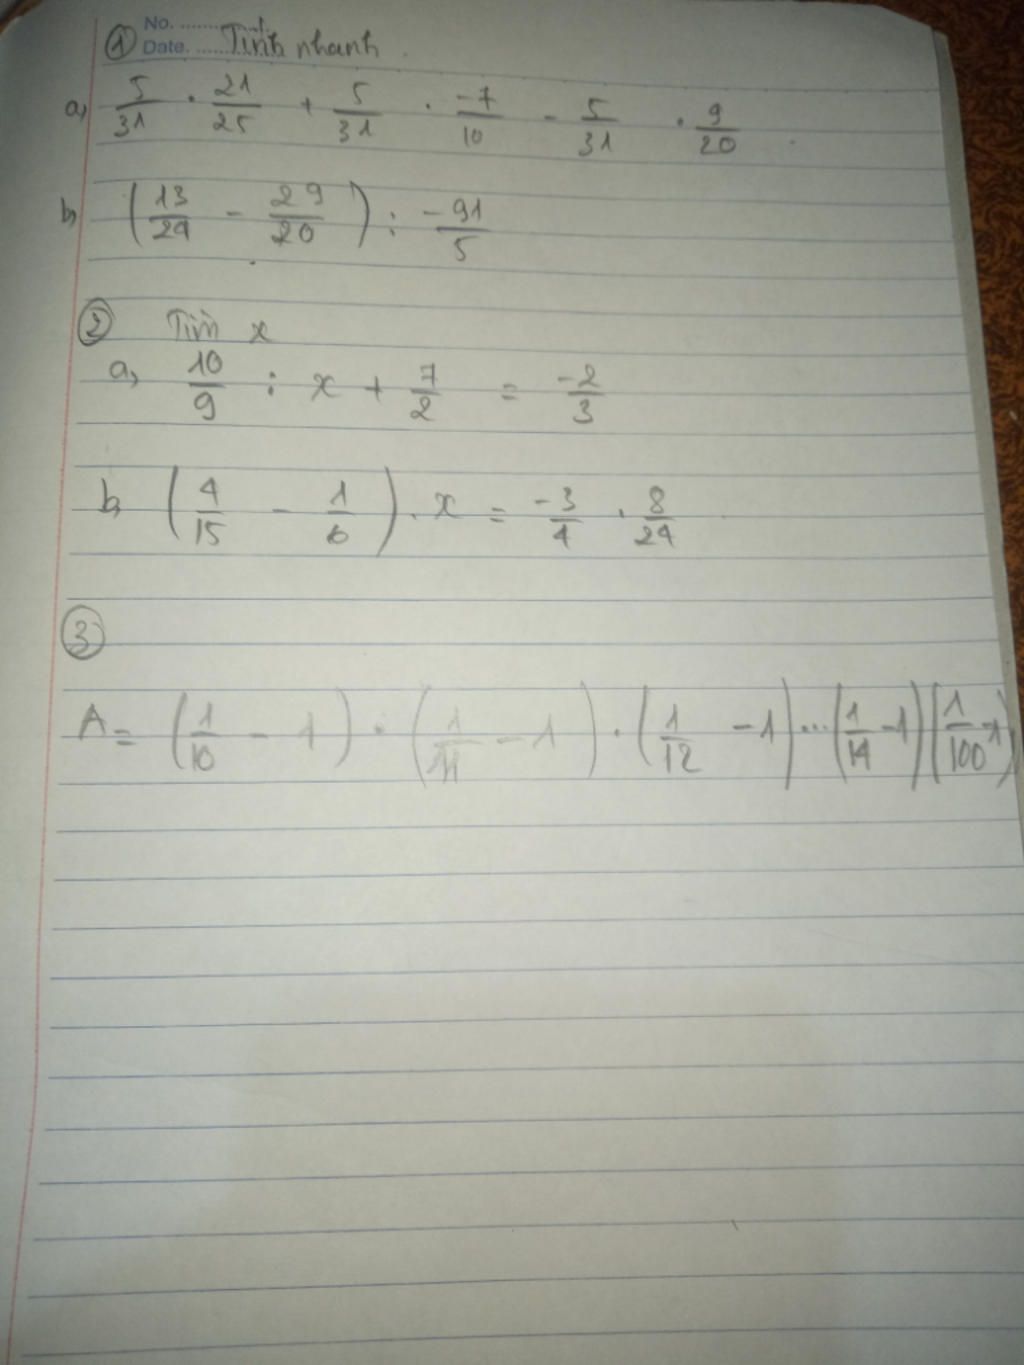 No. ........
① Date. ...... Tính nhanh
a, 5/31 . 21/25 + 5/31 . -7/10 - 5/31 . 9/20
b, (13/24 - 29/20) : -91/5
② Tìm x
a, 10/9 : x + 7/2 = -2/3
b, (4/15 - 1/6) . x = -3/4 . 8/24
③
A = (1/10 - 1) . (1/11 - 1) . (1/12 - 1) ... (1/14 - 1) (1/100 - 1)